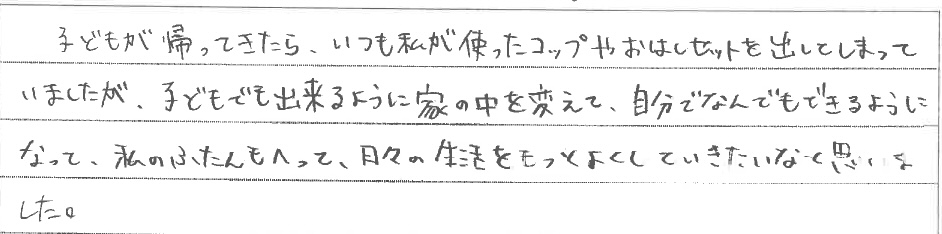 子どもが帰ってきたら、いつも私が使ったコップやおはしセットを出してしまって
いましたが、子どもでも出来るように家の中を変えて、自分でなんでもできるように
なって、私のふたんもへって、日々の生活をもっとよくしていきたいなと思いま
した。